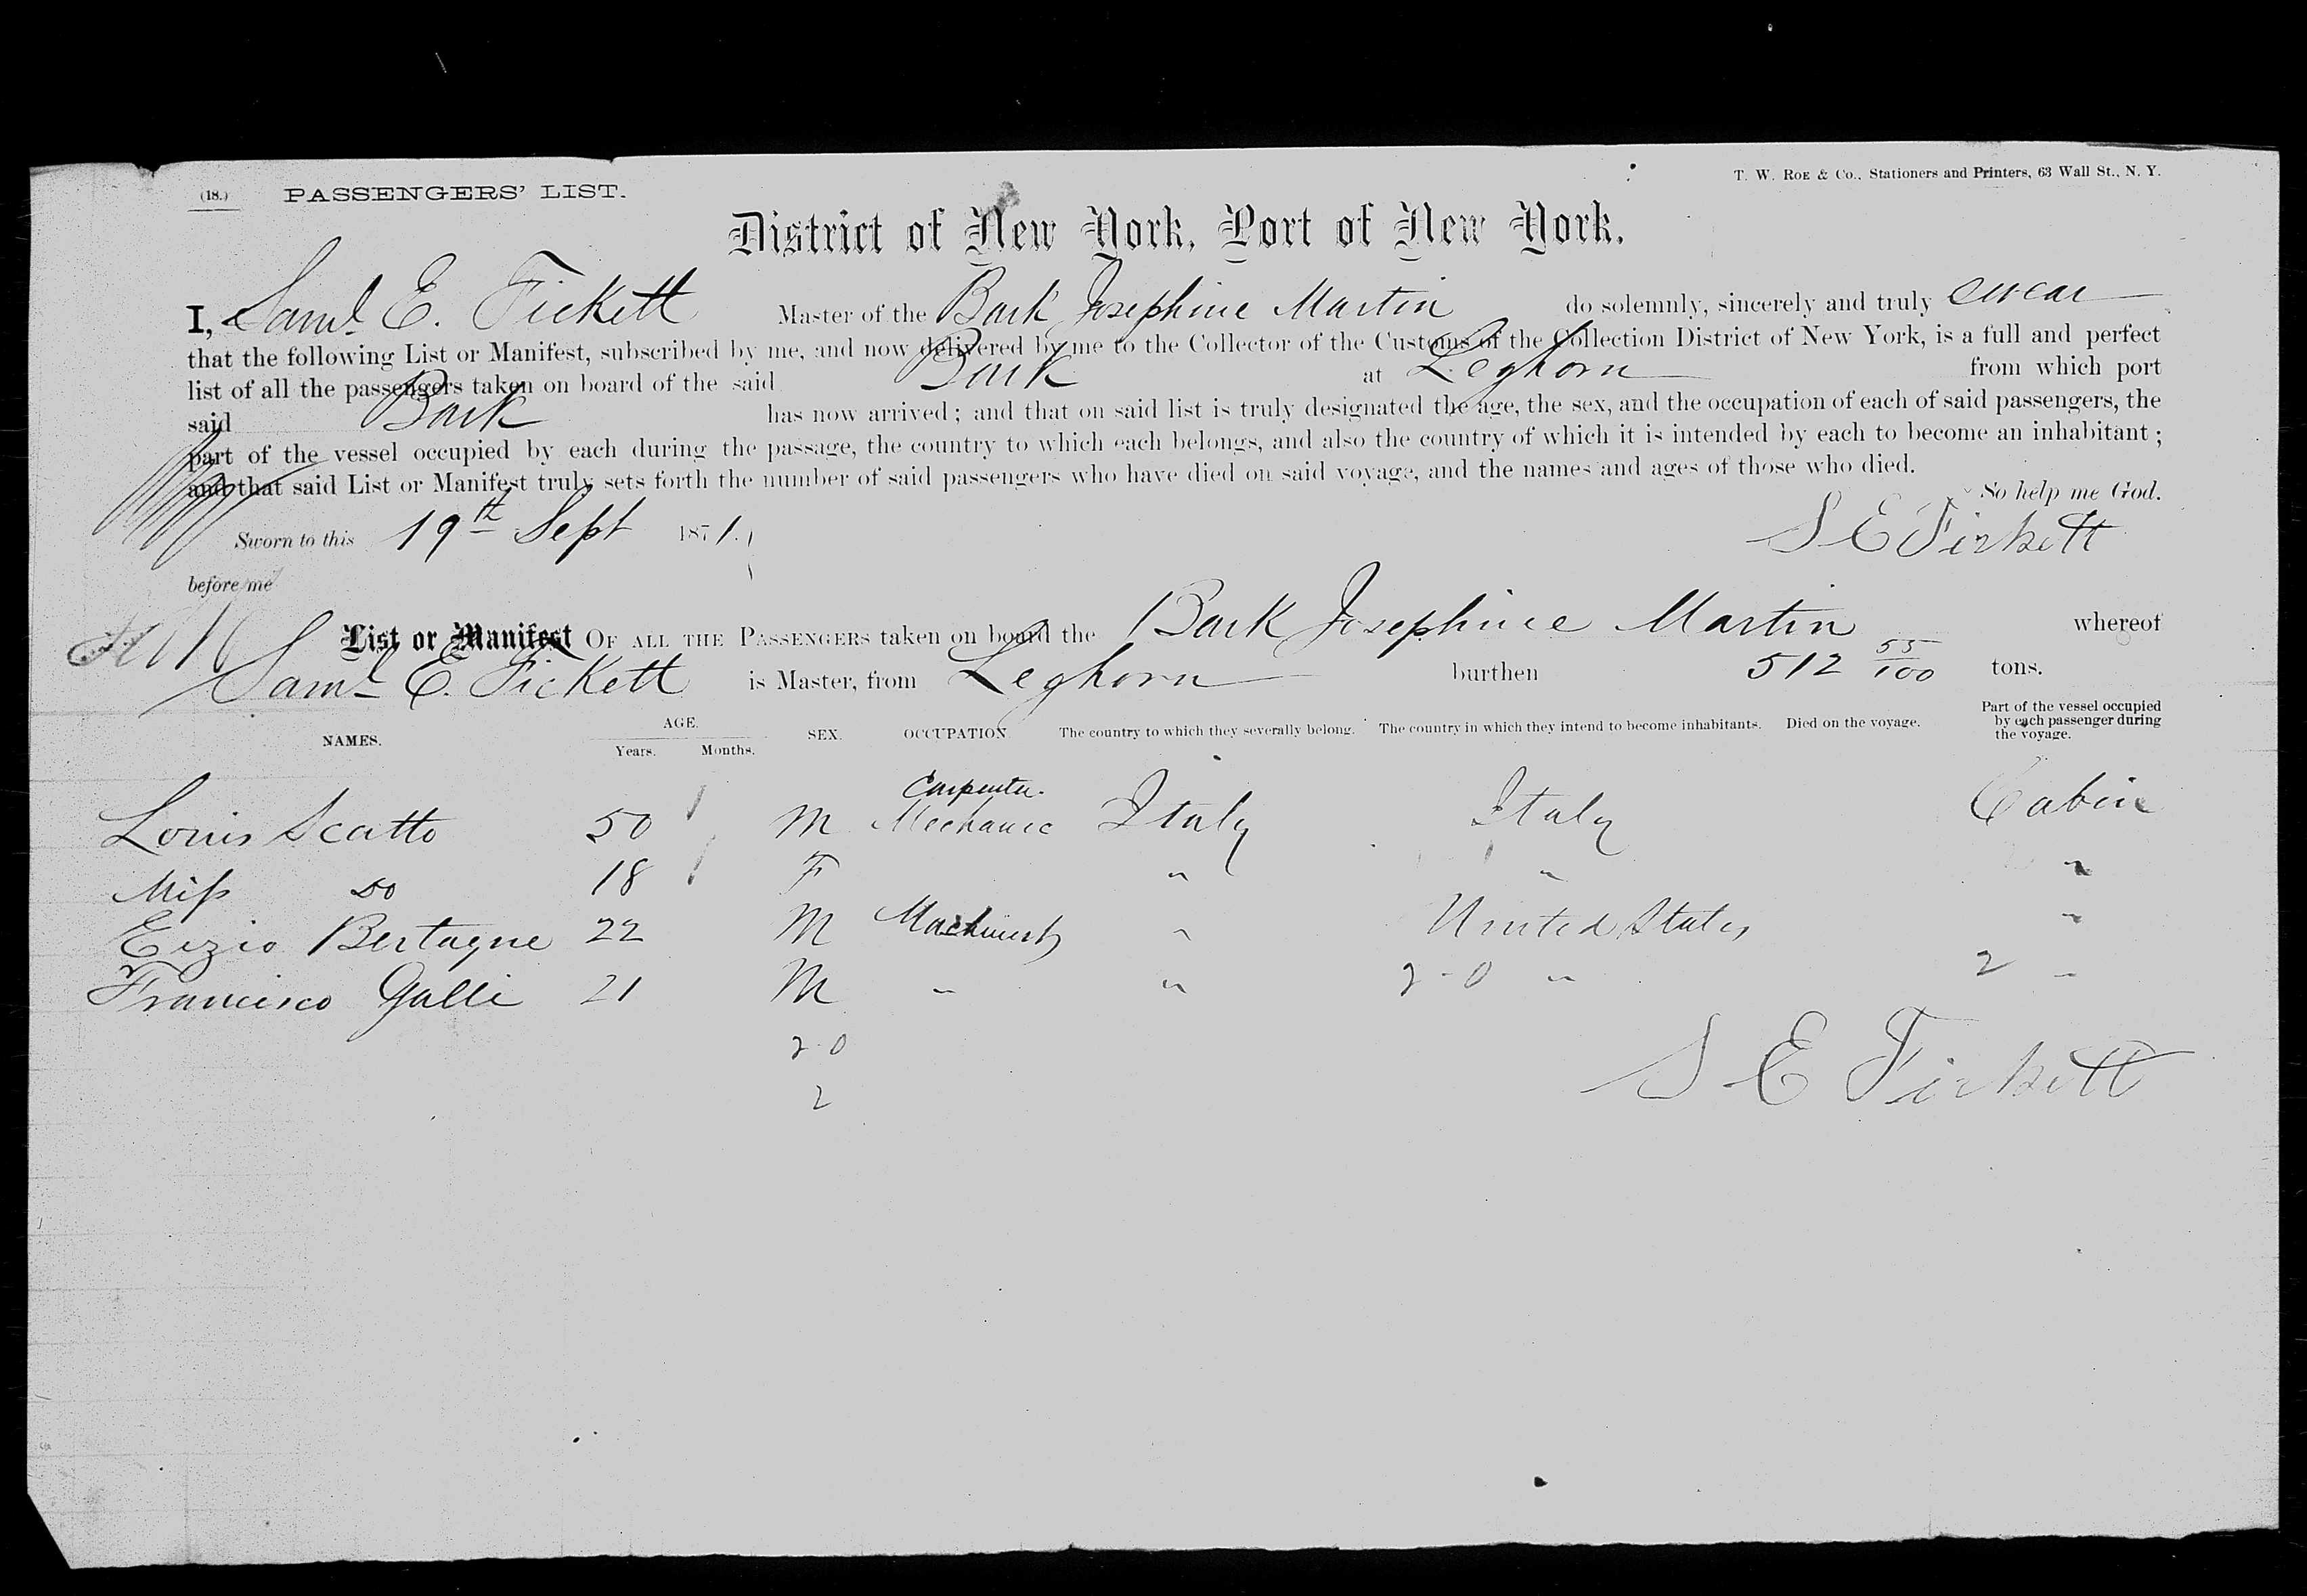 (18.) PASSENGERS' LIST.
T. W. ROE & Co., Stationers and Printers, 63 Wall St., N. Y.
District of New York, Port of New York.
I, Saml. E. Fickett Master of the Bark Josephine Martin do solemnly, sincerely and truly swear
that the following List or Manifest, subscribed by me, and now delivered by me to the Collector of the Customs of the Collection District of New York, is a full and perfect
list of all the passengers taken on board of the said Bark at Leghorn from which port
said Bark has now arrived; and that on said list is truly designated the age, the sex, and the occupation of each of said passengers, the
part of the vessel occupied by each during the passage, the country to which each belongs, and also the country of which it is intended by each to become an inhabitant;
and that said List or Manifest truly sets forth the number of said passengers who have died on said voyage, and the names and ages of those who died.
So help me God.
Sworn to this 19th Sept 1871.
S E Fickett
before me
List or Manifest OF ALL THE PASSENGERS taken on board the Bark Josephine Martin whereof
Saml E. Fickett is Master, from Leghorn burthen 512 55/100 tons.
NAMES. AGE. Years. Months. SEX. OCCUPATION. The country to which they severally belong. The country in which they intend to become inhabitants. Died on the voyage. Part of the vessel occupied by each passenger during the voyage.
Carpenter.
Louis Scatto 50 M Mechanic Italy Italy Cabin
Miss Do 18 F " " "
Eizio Bertagne 22 M Machinist " United States "
Francisco Galli 21 M " " 2-0 " 2 "
2-0
2
S E Fickett